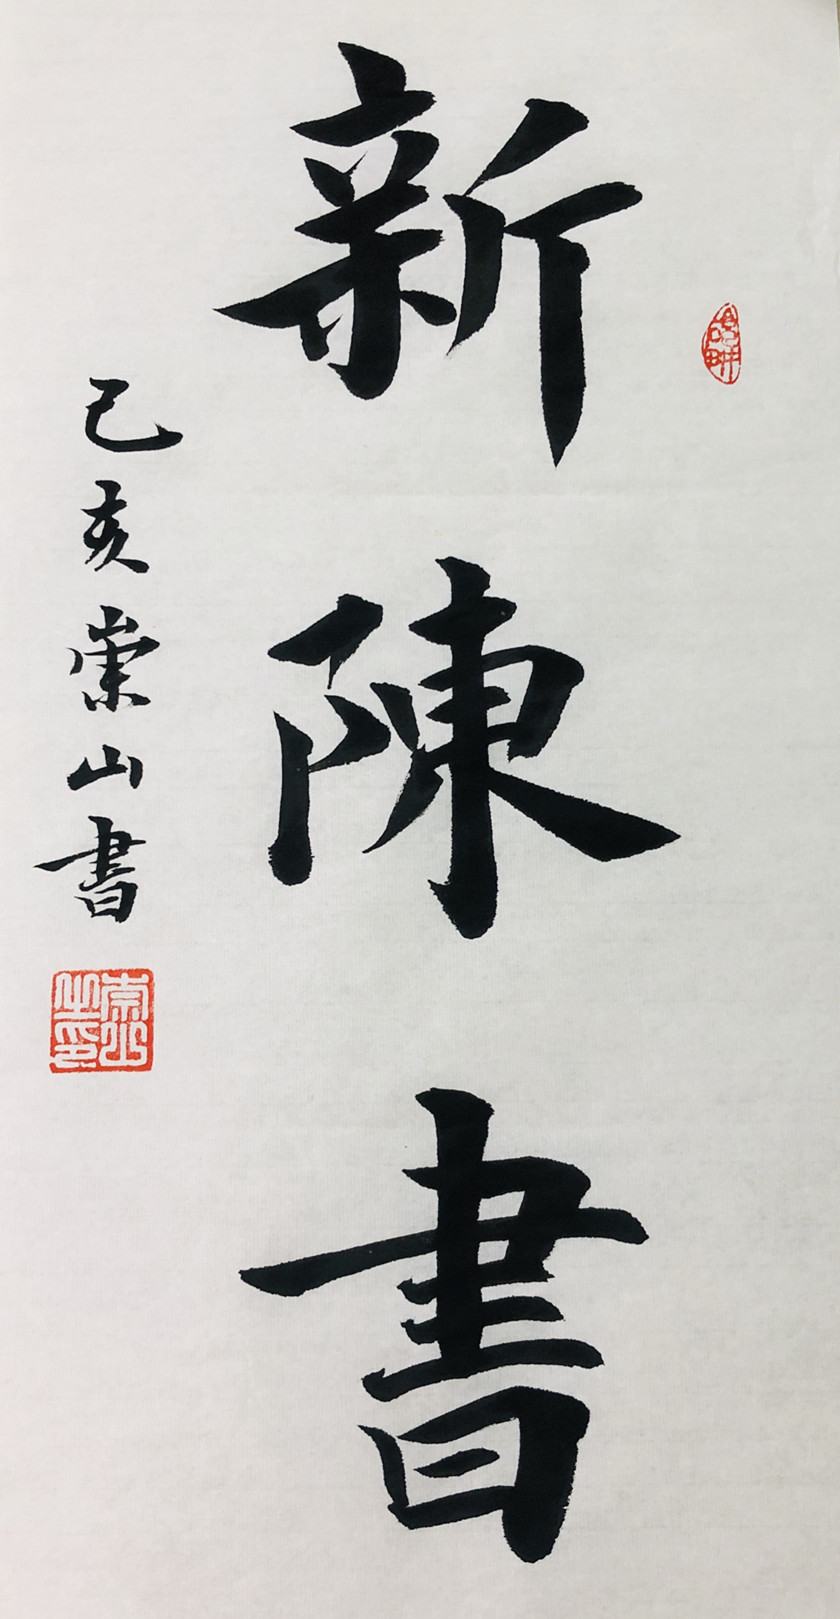 新陳書
己亥崇山書
崇山之印